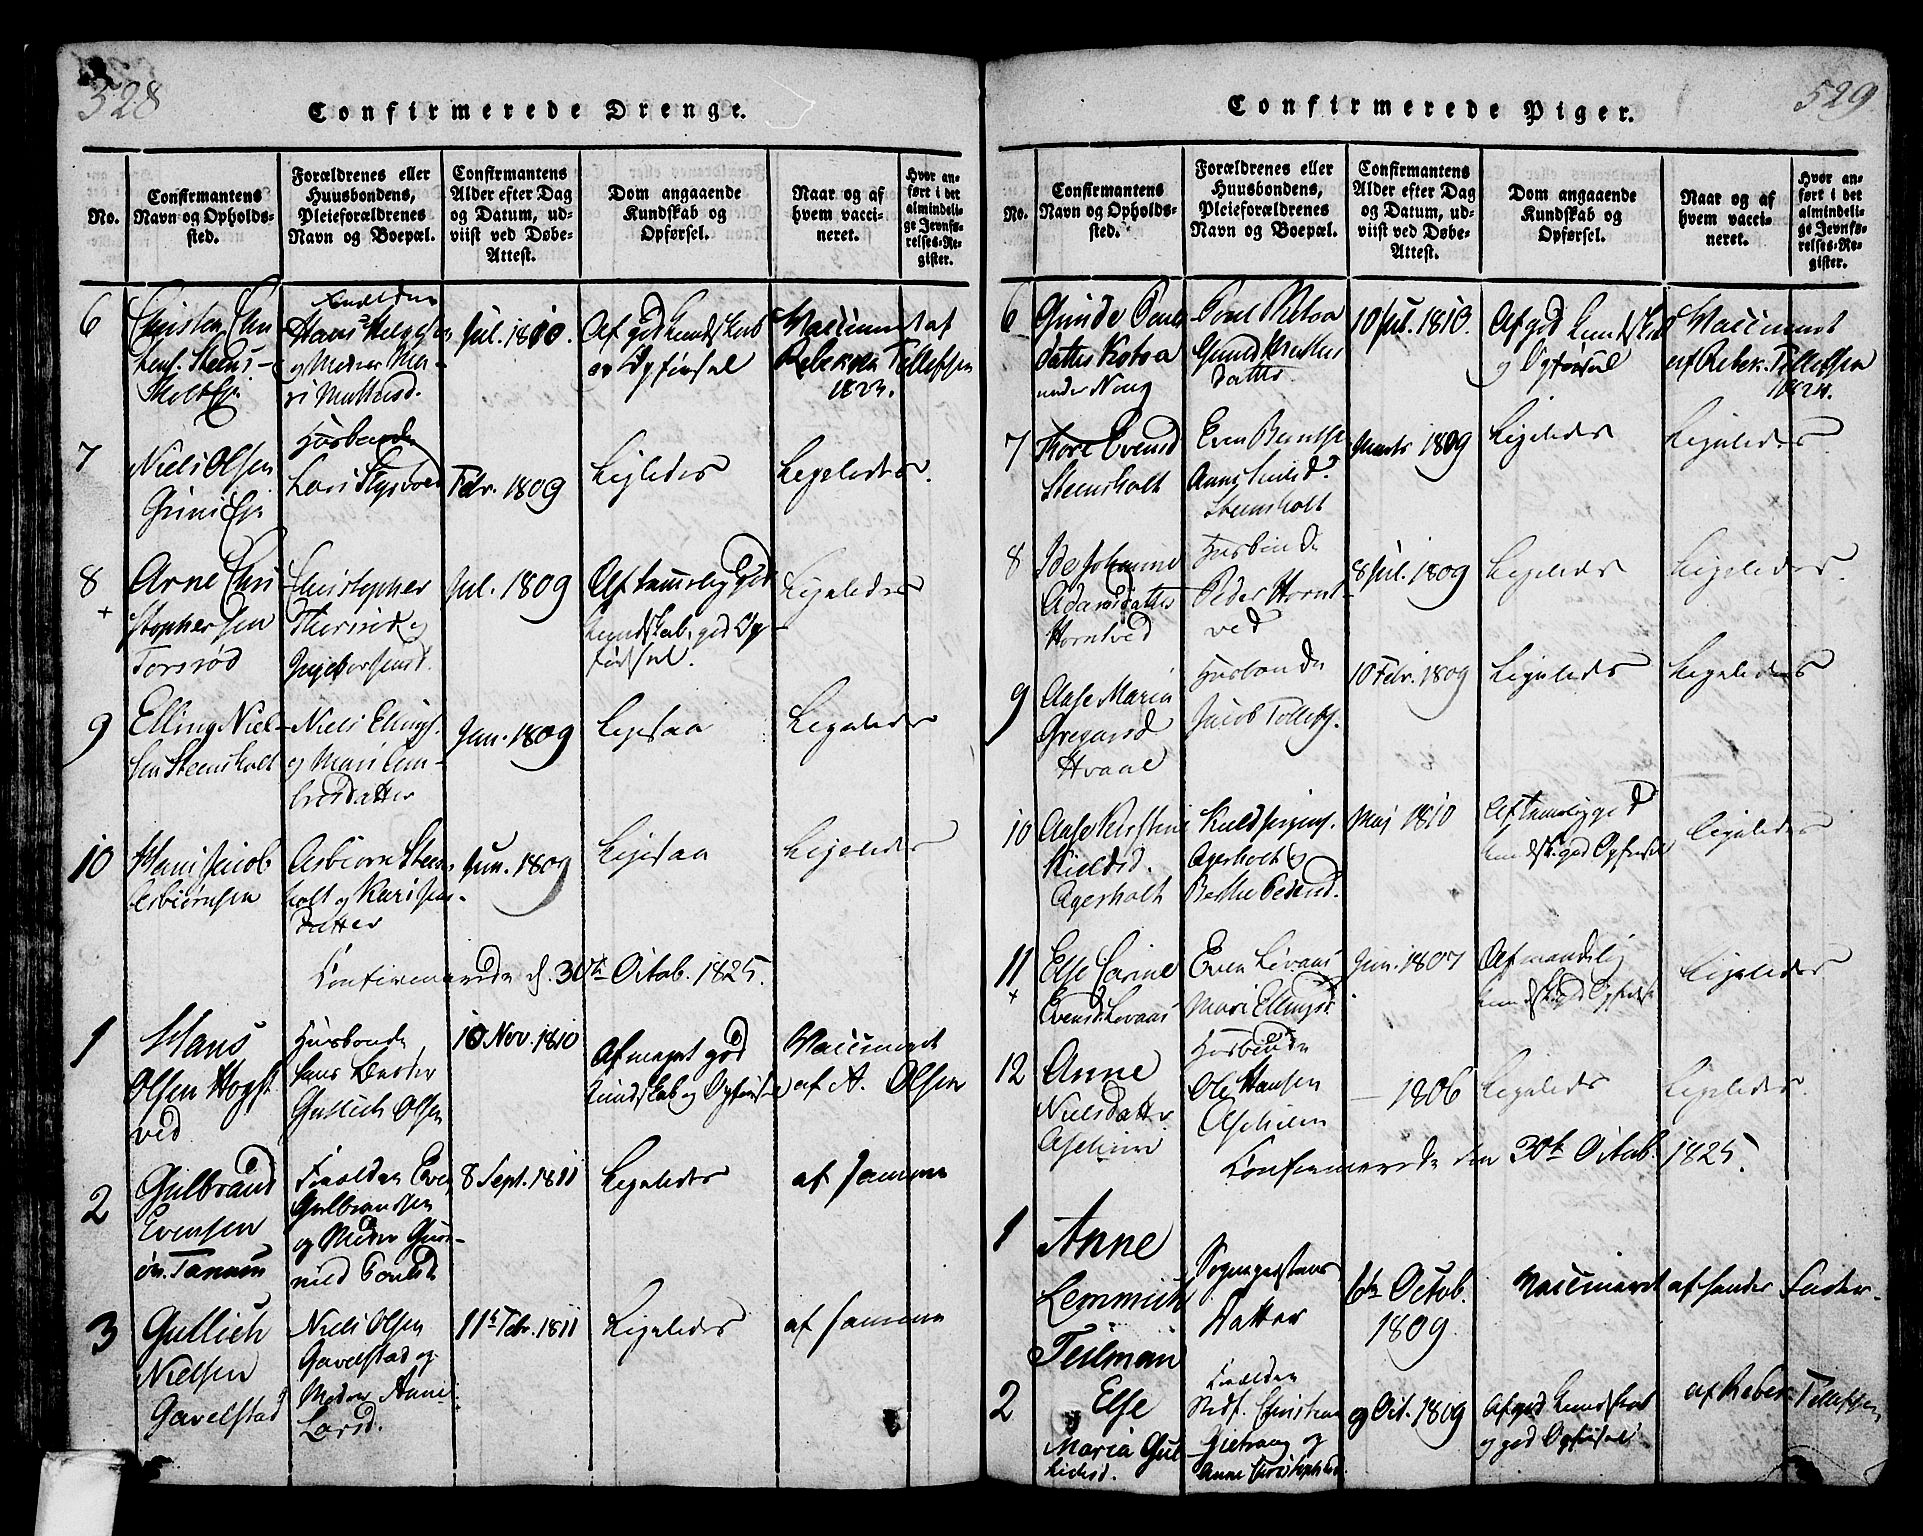 528
Confirmerede Drenge.
No.
Confirmantens
Navn og Opholds-
sted.
Forældrenes eller
Huusbondens,
Pleieforældrenes
Navn og Boepæl.
Confirmantens
Alder efter Dag
og Datum, ud-
viist ved Døbe-
Attest.
Dom angaaende
Kundskab og
Opførsel.
Naar og af
hvem vacci-
neret.
Hvor an-
ført i det
almindeli-
ge Jevnfø-
relses-Re-
gister.
6
Hans Helgesen
og Moder Ma-
ri Mathisd.
Jul. 1810.
Af god Kundskab
og Opførsel
Vaccineret af
Rebekka Tollefsen
1823.
7
Niels Olsen
Husbonde
Febr. 1809
Ligeledes
Ligeledes.
8
+
Arne Chri
stophersen
Torsrød
Christopher
Jul. 1809
Af temmelig god
Kundskab, god Op-
førsel.
Ligeledes
9
Elling Niel-
sen Steensholt
Niels Ellings.
og Mari
datter
Jan. 1809
Ligesaa
Ligeledes
10
Hans Jacob
Asbiørnsen
Asbiørn Steens-
holt og Kari
datter
Jun. 1809
Ligesaa
Ligeledes
Confirmerede d. 30te Octob. 1825.
1
Hans
Olsen Hogst
ved
Husbonde
Gullich Olsen
10 Nov. 1810
Af meget god
Kundskab og Opførsel
Vaccineret
af A. Olsen
2
Gulbrand
Evensen
Forældre Even
Gulbrandsen
og Moder Gun-
nild Poulsd
8 Sept. 1811
Ligeledes
af samme
3
Gullich
Nielsen
Gavelstad
Niels Olsen
Gavelstad og
Moder Anne
Larsd.
11te Febr. 1811
Ligeledes
af samme
529
Confirmerede Piger.
No.
Confirmantens
Navn og Opholds-
sted.
Forældrenes eller
Huusbondens,
Pleieforældrenes
Navn og Boepæl.
Confirmantens
Alder efter Dag
og Datum, ud-
viist ved Døbe-
Attest.
Dom angaaende
Kundskab og
Opførsel.
Naar og af
hvem vacci-
neret.
Hvor an-
ført i det
almindeli-
ge Jevnfø-
relses-Re-
gister.
6
10 Jul. 1810.
Af god Kundskab
og Opførsel
Vaccineret
af Rebek. Tollefsen
1824.
7
Thore Evensd
Steensholt
Steensholt
Marts 1809
Ligeledes
Ligeledes
8
Adamsdatter
Horntved
Husbonde
Peder Hornt-
ved
8 Jul. 1809
Ligeledes
Ligeledes.
9
Aase Maria
Gregersd
Hvaal
Husbonde
Jacob Tollefs.
10 Febr. 1809
Ligeledes
Ligeledes
10
Aase Kirstine
Kieldsd.
Agerholt
Agerholt og
Berthe Pedersd.
Maj 1810
Af temelig god
Kundsk. god Opførsel
Ligeledes
11
+
Else Carine
Evensd. Lovaas
Even Lovaas
Mari Ellingsd
Jun. 1807
Af maadelig
Kundsk. god Opførsel
Ligeledes
12
Anne
Nielsdatter
Husbonde
Ole Hansen
1806
Ligeledes
Ligeledes.
Confirmerede den 30te Octob. 1825.
1
Anne
Lemmich
Teilman
Sogneprestens
Datter
6te Octob.
1809.
Vaccineret af
2
Else
Maria Gul-
lichsd.
Forældre
og
Anne Christophersd.
9 Oct. 1809
Af god Kundskab
og god Opførsel
af Rebek. Tollefsen